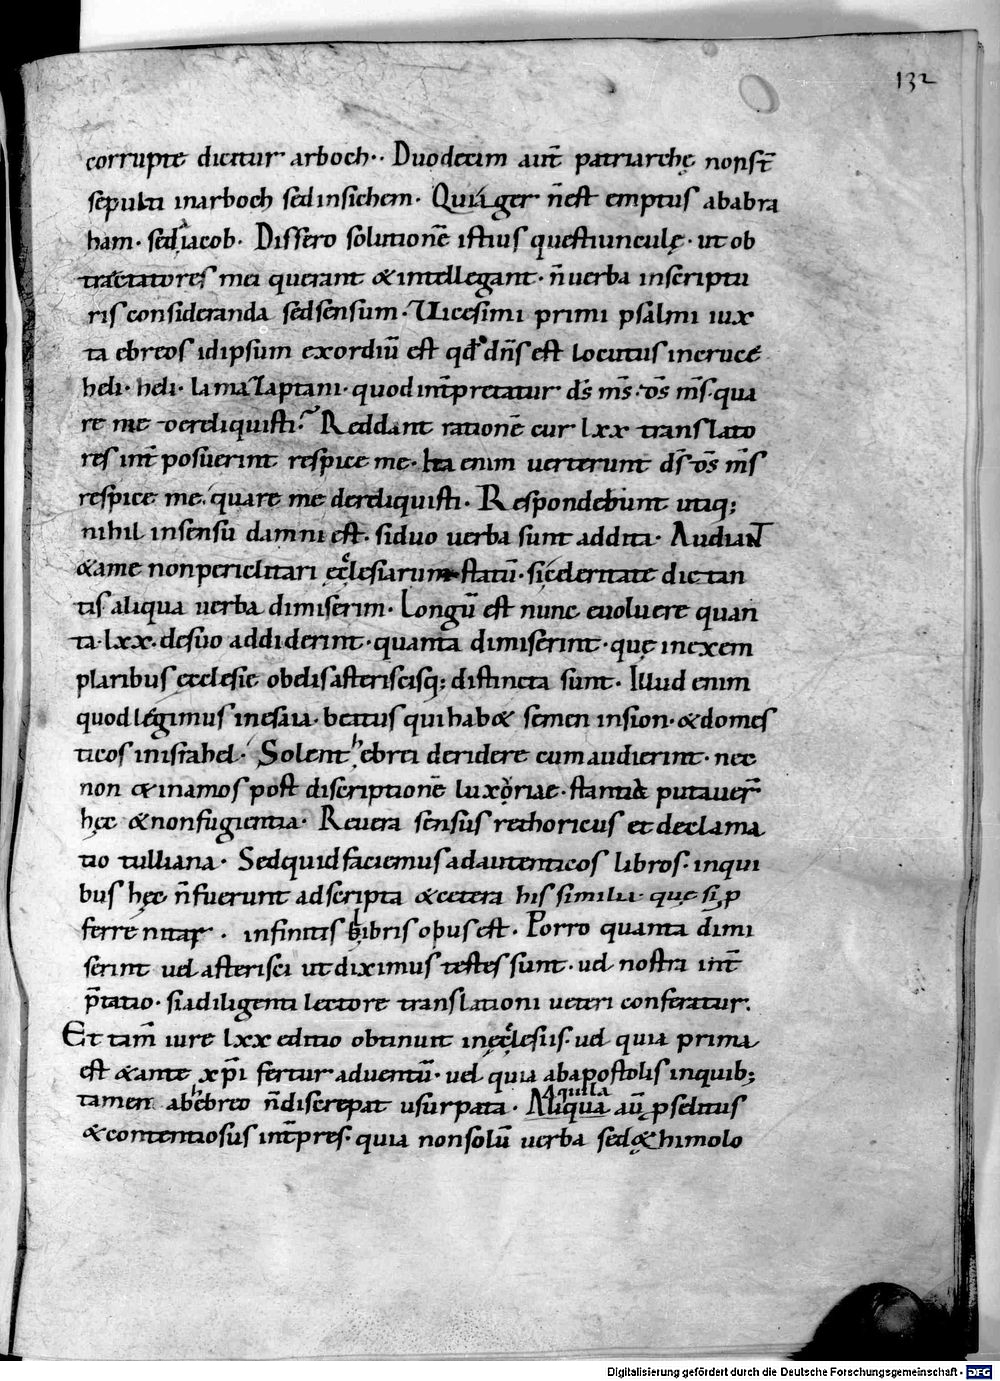 132
corrupte dicitur arboch·· Duodecim aut̄ patriarchę non st̄
sepulti in arboch sed in sichem· Qui ager n̄ est emptus ab abra
ham· sed a iacob· Dissero solutionē istius questiunculę· ut ob
trectatores mei querant & intellegant· n̄ uerba in scriptu
ris consideranda sed sensum· Uicesimi primi psalmi iux
ta ebreos id ipsum exordiū est qd̄ dn̄s est locutus in cruce
heli· heli· lama zaptani· quod int̄pretatur ds̄ ms̄· ds̄ ms̄· qua
re me dereliquisti? Reddant rationē cur lxx translato
res int̄posuerint respice me· Ita enim uerterunt ds̄ ds̄ ms̄
respice me· quare me dereliquisti· Respondebunt utiq;
nihil in sensu damni est· si duo uerba sunt addita· Audiant
& a me non periclitari ęcclesiarum statū· si celeritate dictan
tis aliqua uerba dimiserim· Longū est nunc euoluere quan
ta· lxx· de suo addiderint· quanta dimiserint· quę in exem
plaribus ecclesie obelis asteriscisq; distincta sunt· Illud enim
quod legimus in esaia· beatus qui hab& semen in sion· & domes
ticos in israhel· Solent hebrei deridere cum audierint· nec
non & in amos post discriptionē luxoriae· stantia putauer̄
hęc & non fugientia· Reuera sensus rethoricus et declama
tio tulliana· Sed quid faciemus ad autenticos libros· in qui
bus hęc n̄ fuerunt adscripta & cetera his similia· quę si p
ferre nitar· infinitis libris opus est· Porro quanta dimi
serint uel asterisci ut diximus testes sunt· uel nostra int̄
p̄tatio· si a diligenti lectore translationi ueteri conferatur·
Et tam̄ iure lxx editio obtinuit in ęcclesiis· uel quia prima
est & ante xp̄i fertur aduentū· uel quia ab apostolis in quib;
tamen ab hebreo n̄ discrepat usurpata· Aliqua Aquila aū pselitus
& contentiosus int̄pres· quia non solū uerba sed & himolo
Digitalisierung gefördert durch die Deutsche Forschungsgemeinschaft - DFG